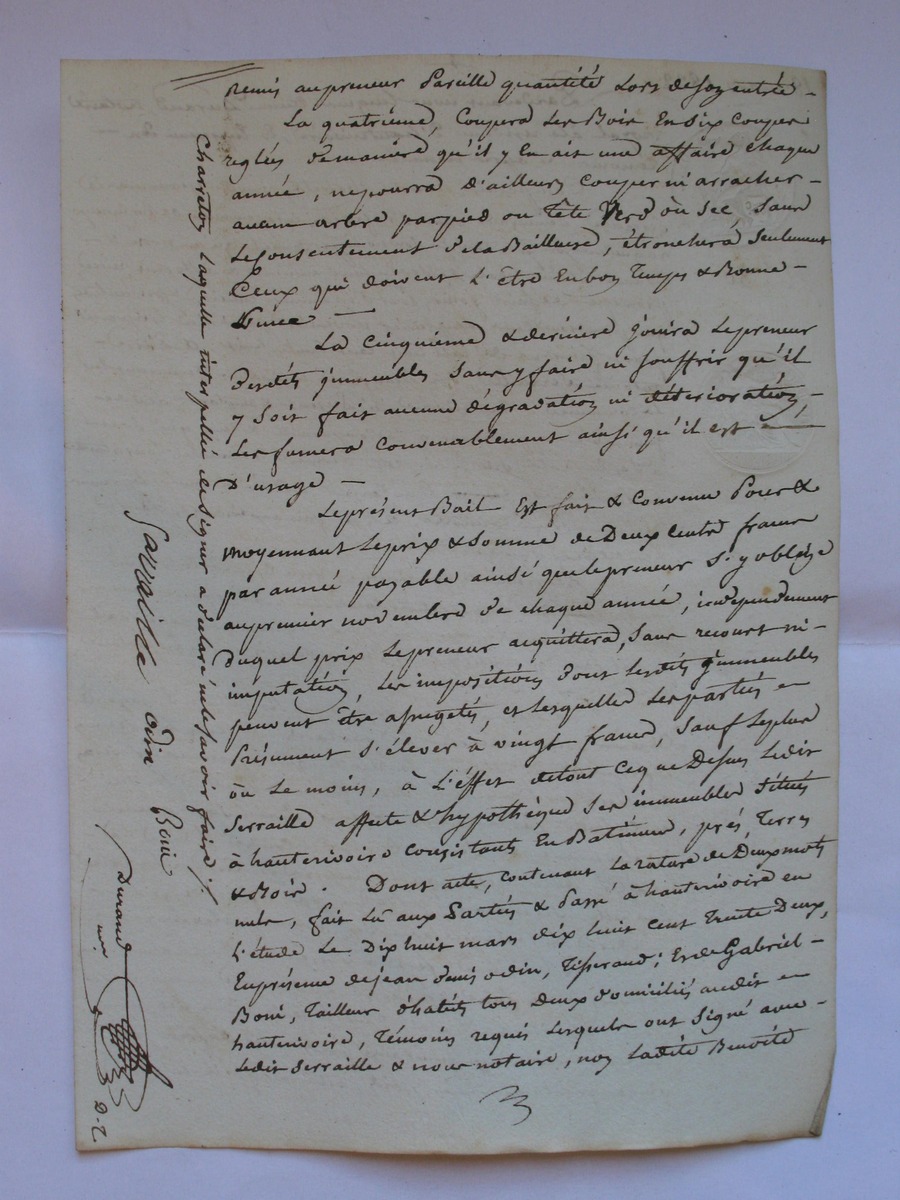 Remis au preneur Pareille quantité Lors de Son entrée -
La quatrième, Coupera Les Bois En Six Coupes
reglées de maniere qu'il y En ait une affaire chaque
année, ne pourra d'ailleurs Couper ni arracher -
aucun arbre par pied ou Tête Verd ou Sec, Sans
Le Consentement de la Bailleuse, étronchera Seulement
Ceux qui doivent L'être En bon Temps & Bonne -
Lunee —
La Cinquième & derniere Jouira Le preneur
Desdits Jmmeubles Sans y faire ni Souffrir qu'il
y Soit fait aucune dégradation ni déterioration, -
Les fumera Convenablement ainsi qu'il est —
D'usage —
Le présent Bail Est fait & Convenu Pour &
moyennant Le prix & Somme de Deux Cents francs
par année payable ainsi que Le preneur S'y oblige
au premier novembre de chaque année, independement
duquel prix Le preneur acquittera, Sans recours ni -
imputation, Les impositions dont Lesdits Jmmeubles
peuvent être assugetés, et Lesquelles Les parties -
Présument S'élever à vingt francs, Sauf Le plus
ou Le moins, à L'effet de tout Ce que Dessus Ledit
Serraille affecte & hypothèque Ses immeubles Situés
à hauterivoire Consistants En Batiments, prés, Terres
& Bois. Dont acte, Contenant La rature de Deux mots
nuls, fait Lu aux Parties & Passé à hauterivoire en
L'étude Le Dix huit mars dix huit Cent Trente Deux,
En présence de jean denis odin, Tisserand; Et de Gabriel -
Boni, Tailleur d'habits tous Deux domiciliés audit -
hauterivoire, Témoins requis Lesquels ont Signé avec -
Ledit Serraille & nous notaire, non Ladite Benoite
Charreton Laquelle interpellée de Signer a déclaré ne le Savoir faire /.
Sarraille odin Boni
Durand
nre
D. T.